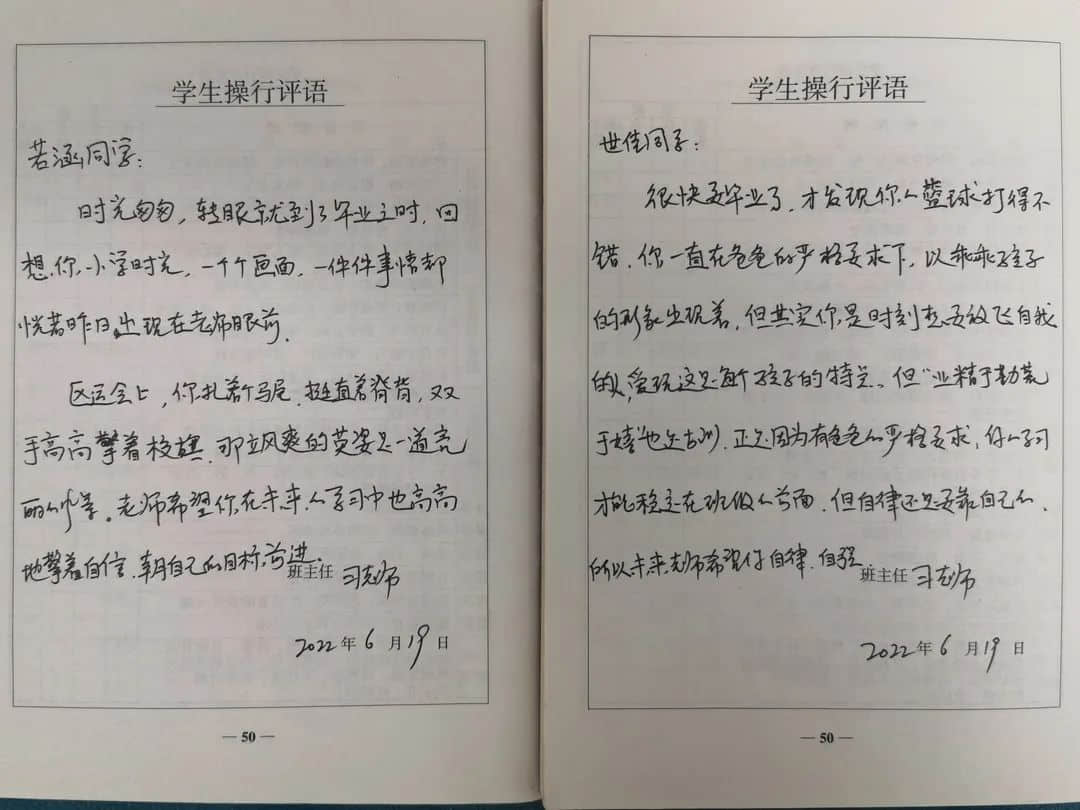 学生操行评语
若涵同学：
时光匆匆，转眼就到了毕业之时，回
想你小学时光，一个个画面，一件件事情都
恍若昨日出现在老师眼前。
区运会上，你扎着个马尾，挺直着脊背，双
手高高擎着校旗，那飒爽的英姿是一道亮
丽的风景。老师希望你在未来的学习中也高高
地擎着自信，朝自己的目标前进。
班主任 习老师
2022年6月19日
— 50 —
学生操行评语
世佳同学：
很快要毕业了，才发现你的篮球打得不
错，你一直在爸爸的严格要求下，以乖乖孩子
的形象出现着，但其实你是时刻想要放飞自我
的人，爱玩这是每个孩子的特点。但“业精于勤荒
于嬉”也是古训，正是因为有爸爸的严格要求，你的学习
才能稳定在班级的前面，但自律还是要靠自己的，
所以未来老师希望你自律、自强。
班主任 习老师
2022年6月19日
— 50 —